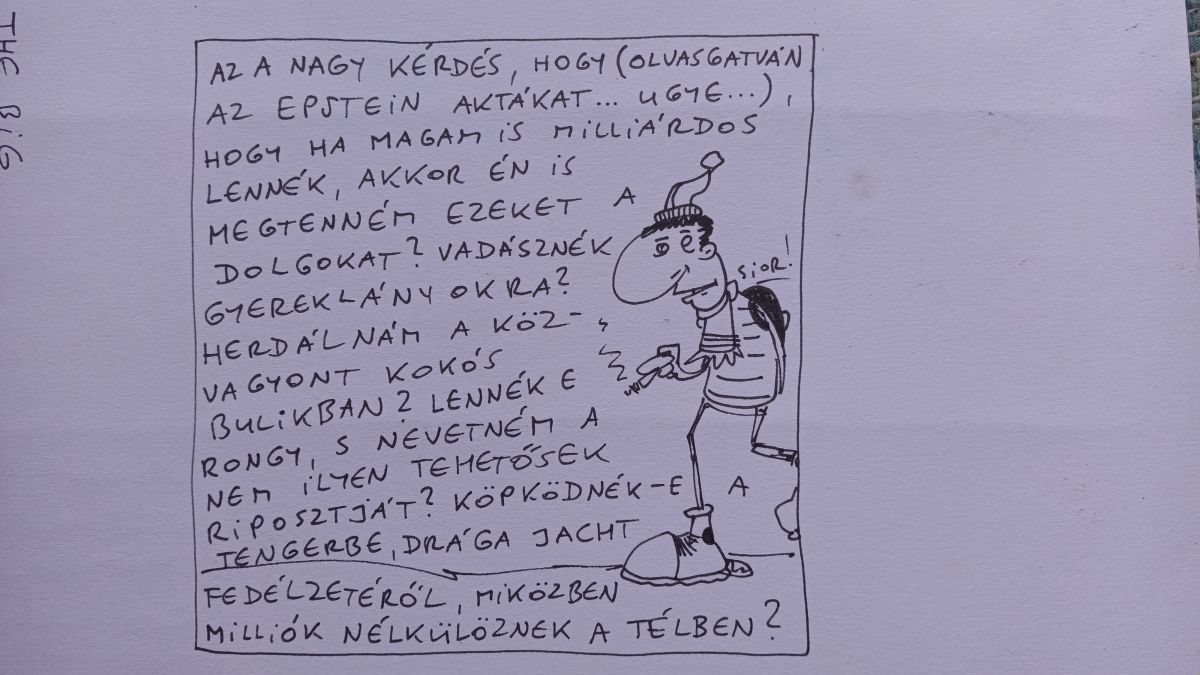 THE BIG
AZ A NAGY KÉRDÉS, HOGY (OLVASGATVÁN
AZ EPSTEIN AKTÁKAT... UGYE...),
HOGY HA MAGAM IS MILLIÁRDOS
LENNÉK, AKKOR ÉN IS
MEGTENNÉM EZEKET A
DOLGOKAT? VADÁSZNÉK
GYEREKLÁNYOKRA?
HERDÁLNÁM A KÖZ-
VAGYONT KOKÓS
BULIKBAN? LENNÉK E
RONGY, S NEVETNÉM A
NEM ILYEN TEHETŐSEK
RIPOSZTJÁT? KÖPKÖDNÉK-E A
TENGERBE, DRÁGA JACHT
FEDÉLZETÉRŐL, MIKÖZBEN
MILLIÓK NÉLKÜLÖZNEK A TÉLBEN?
SIOR!